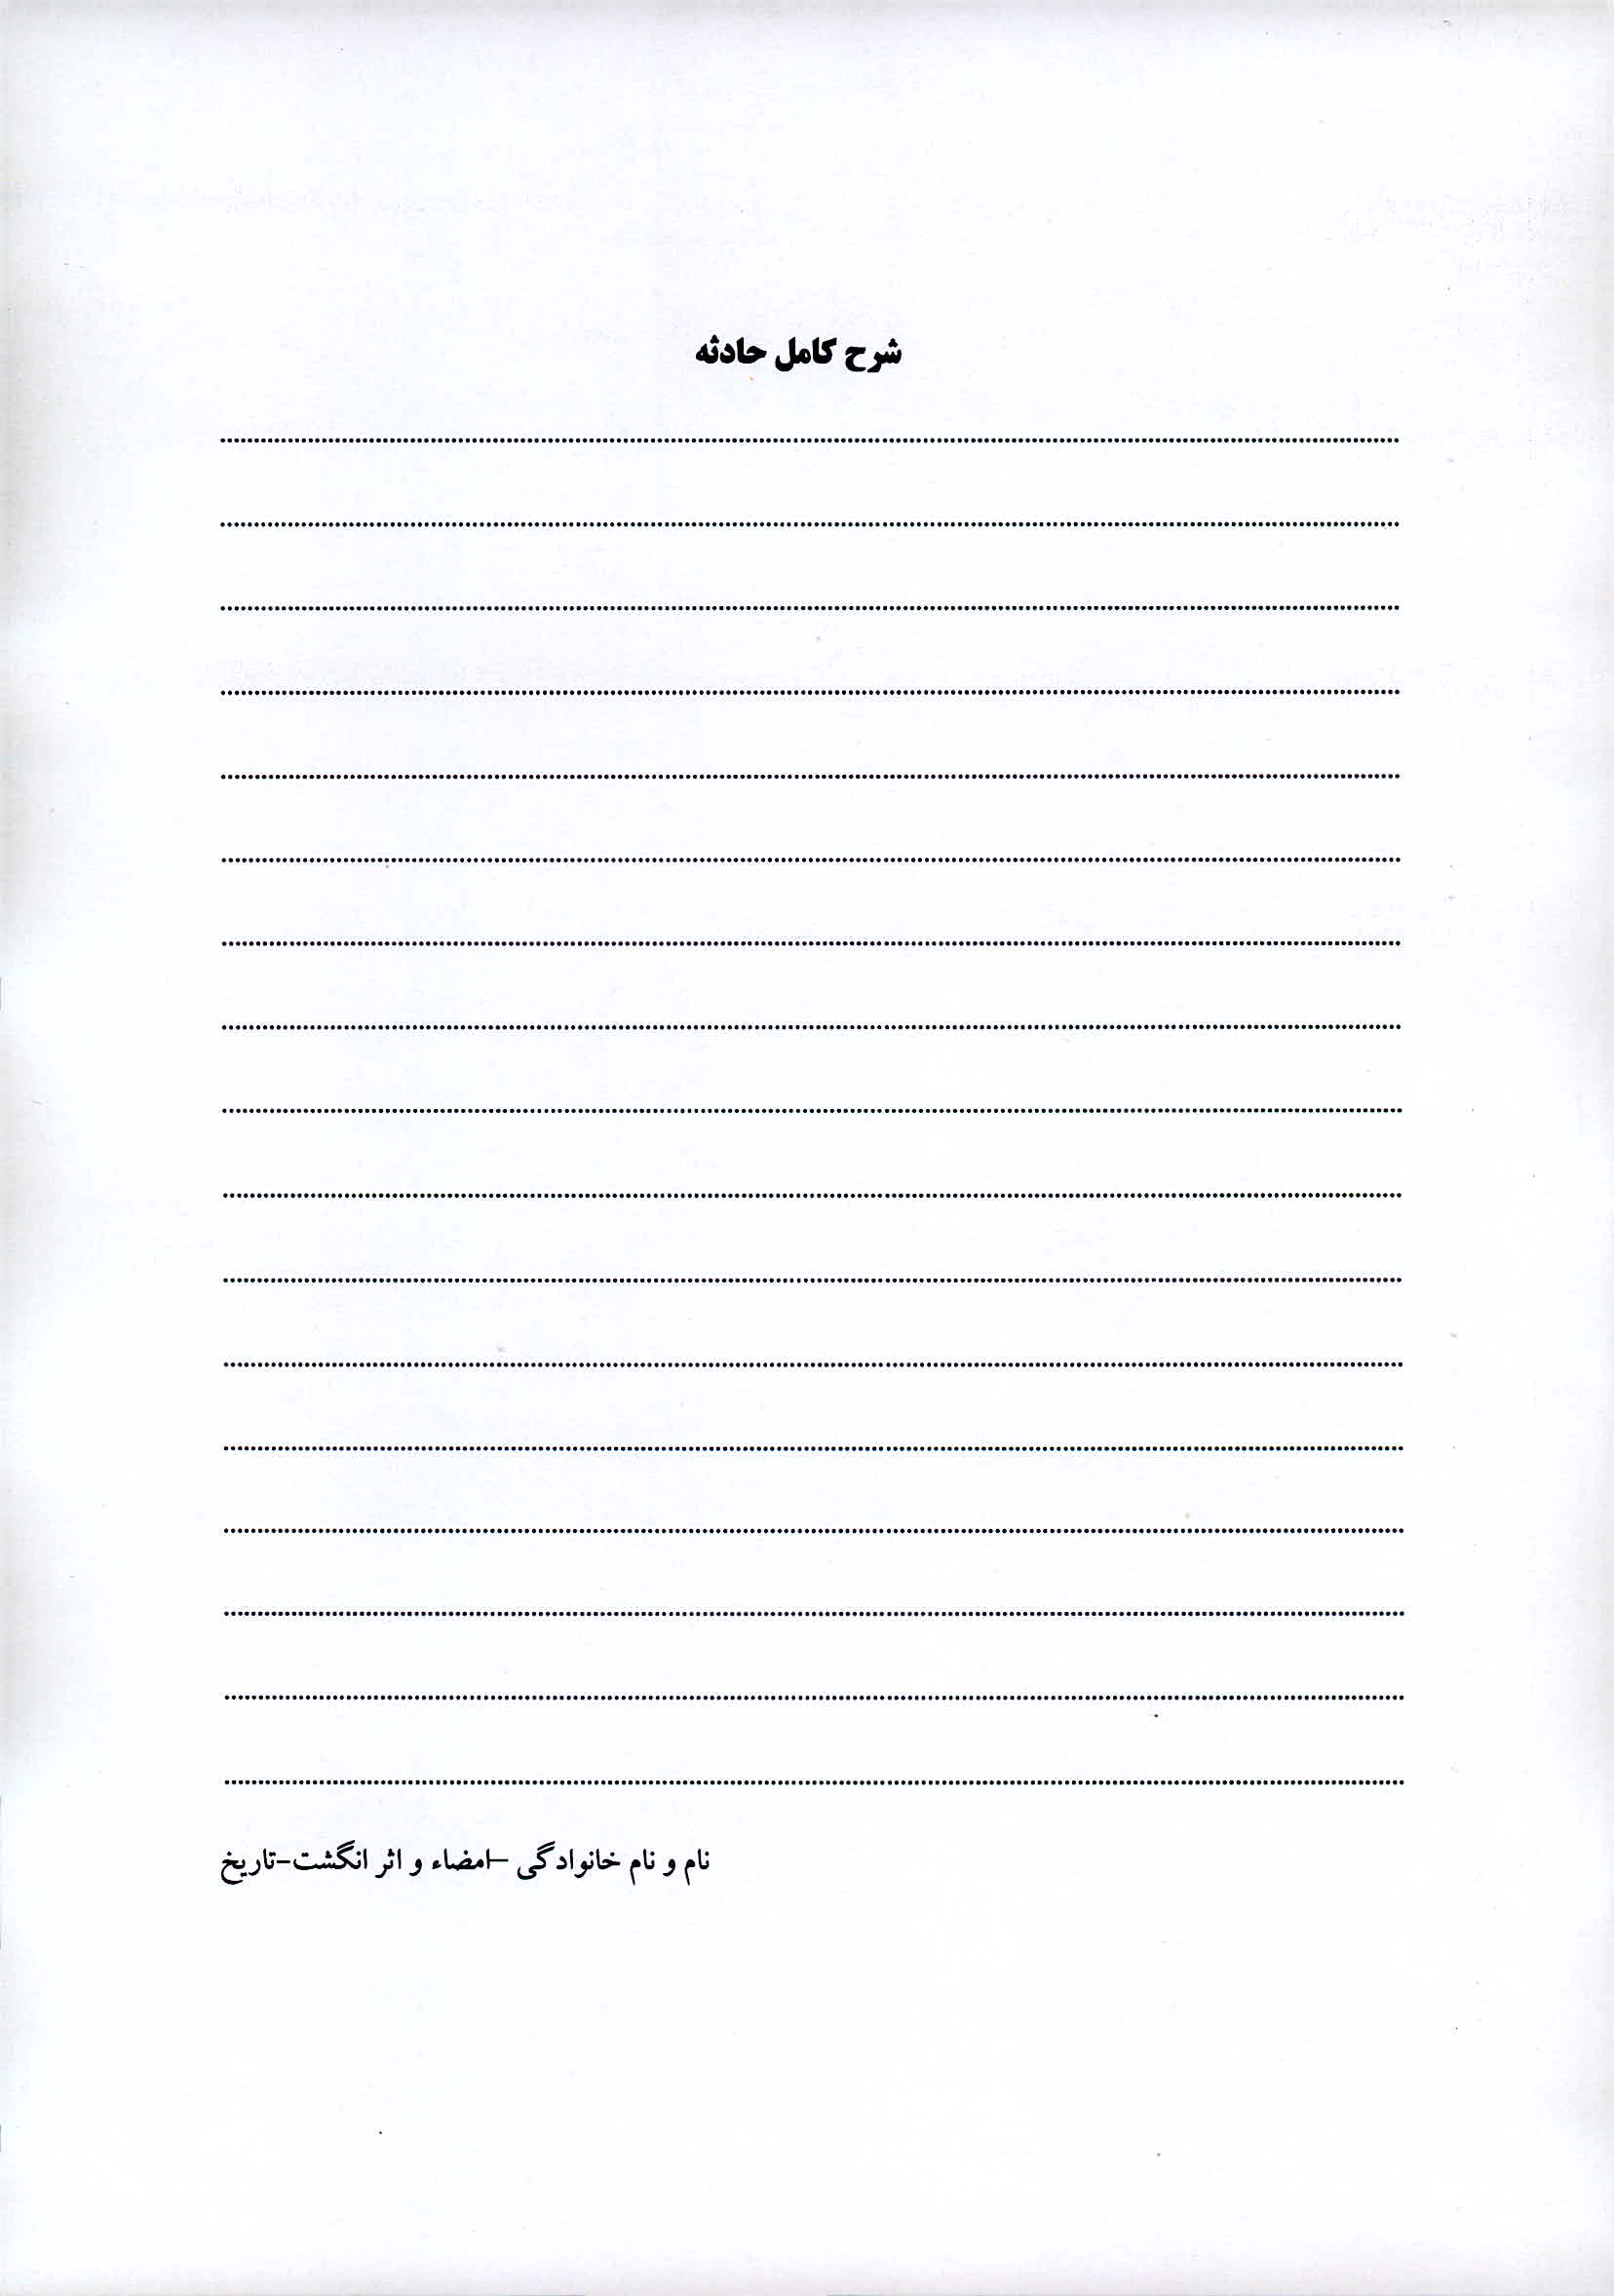 شرح کامل حادثه
نام و نام خانوادگی –امضاء و اثر انگشت-تاریخ